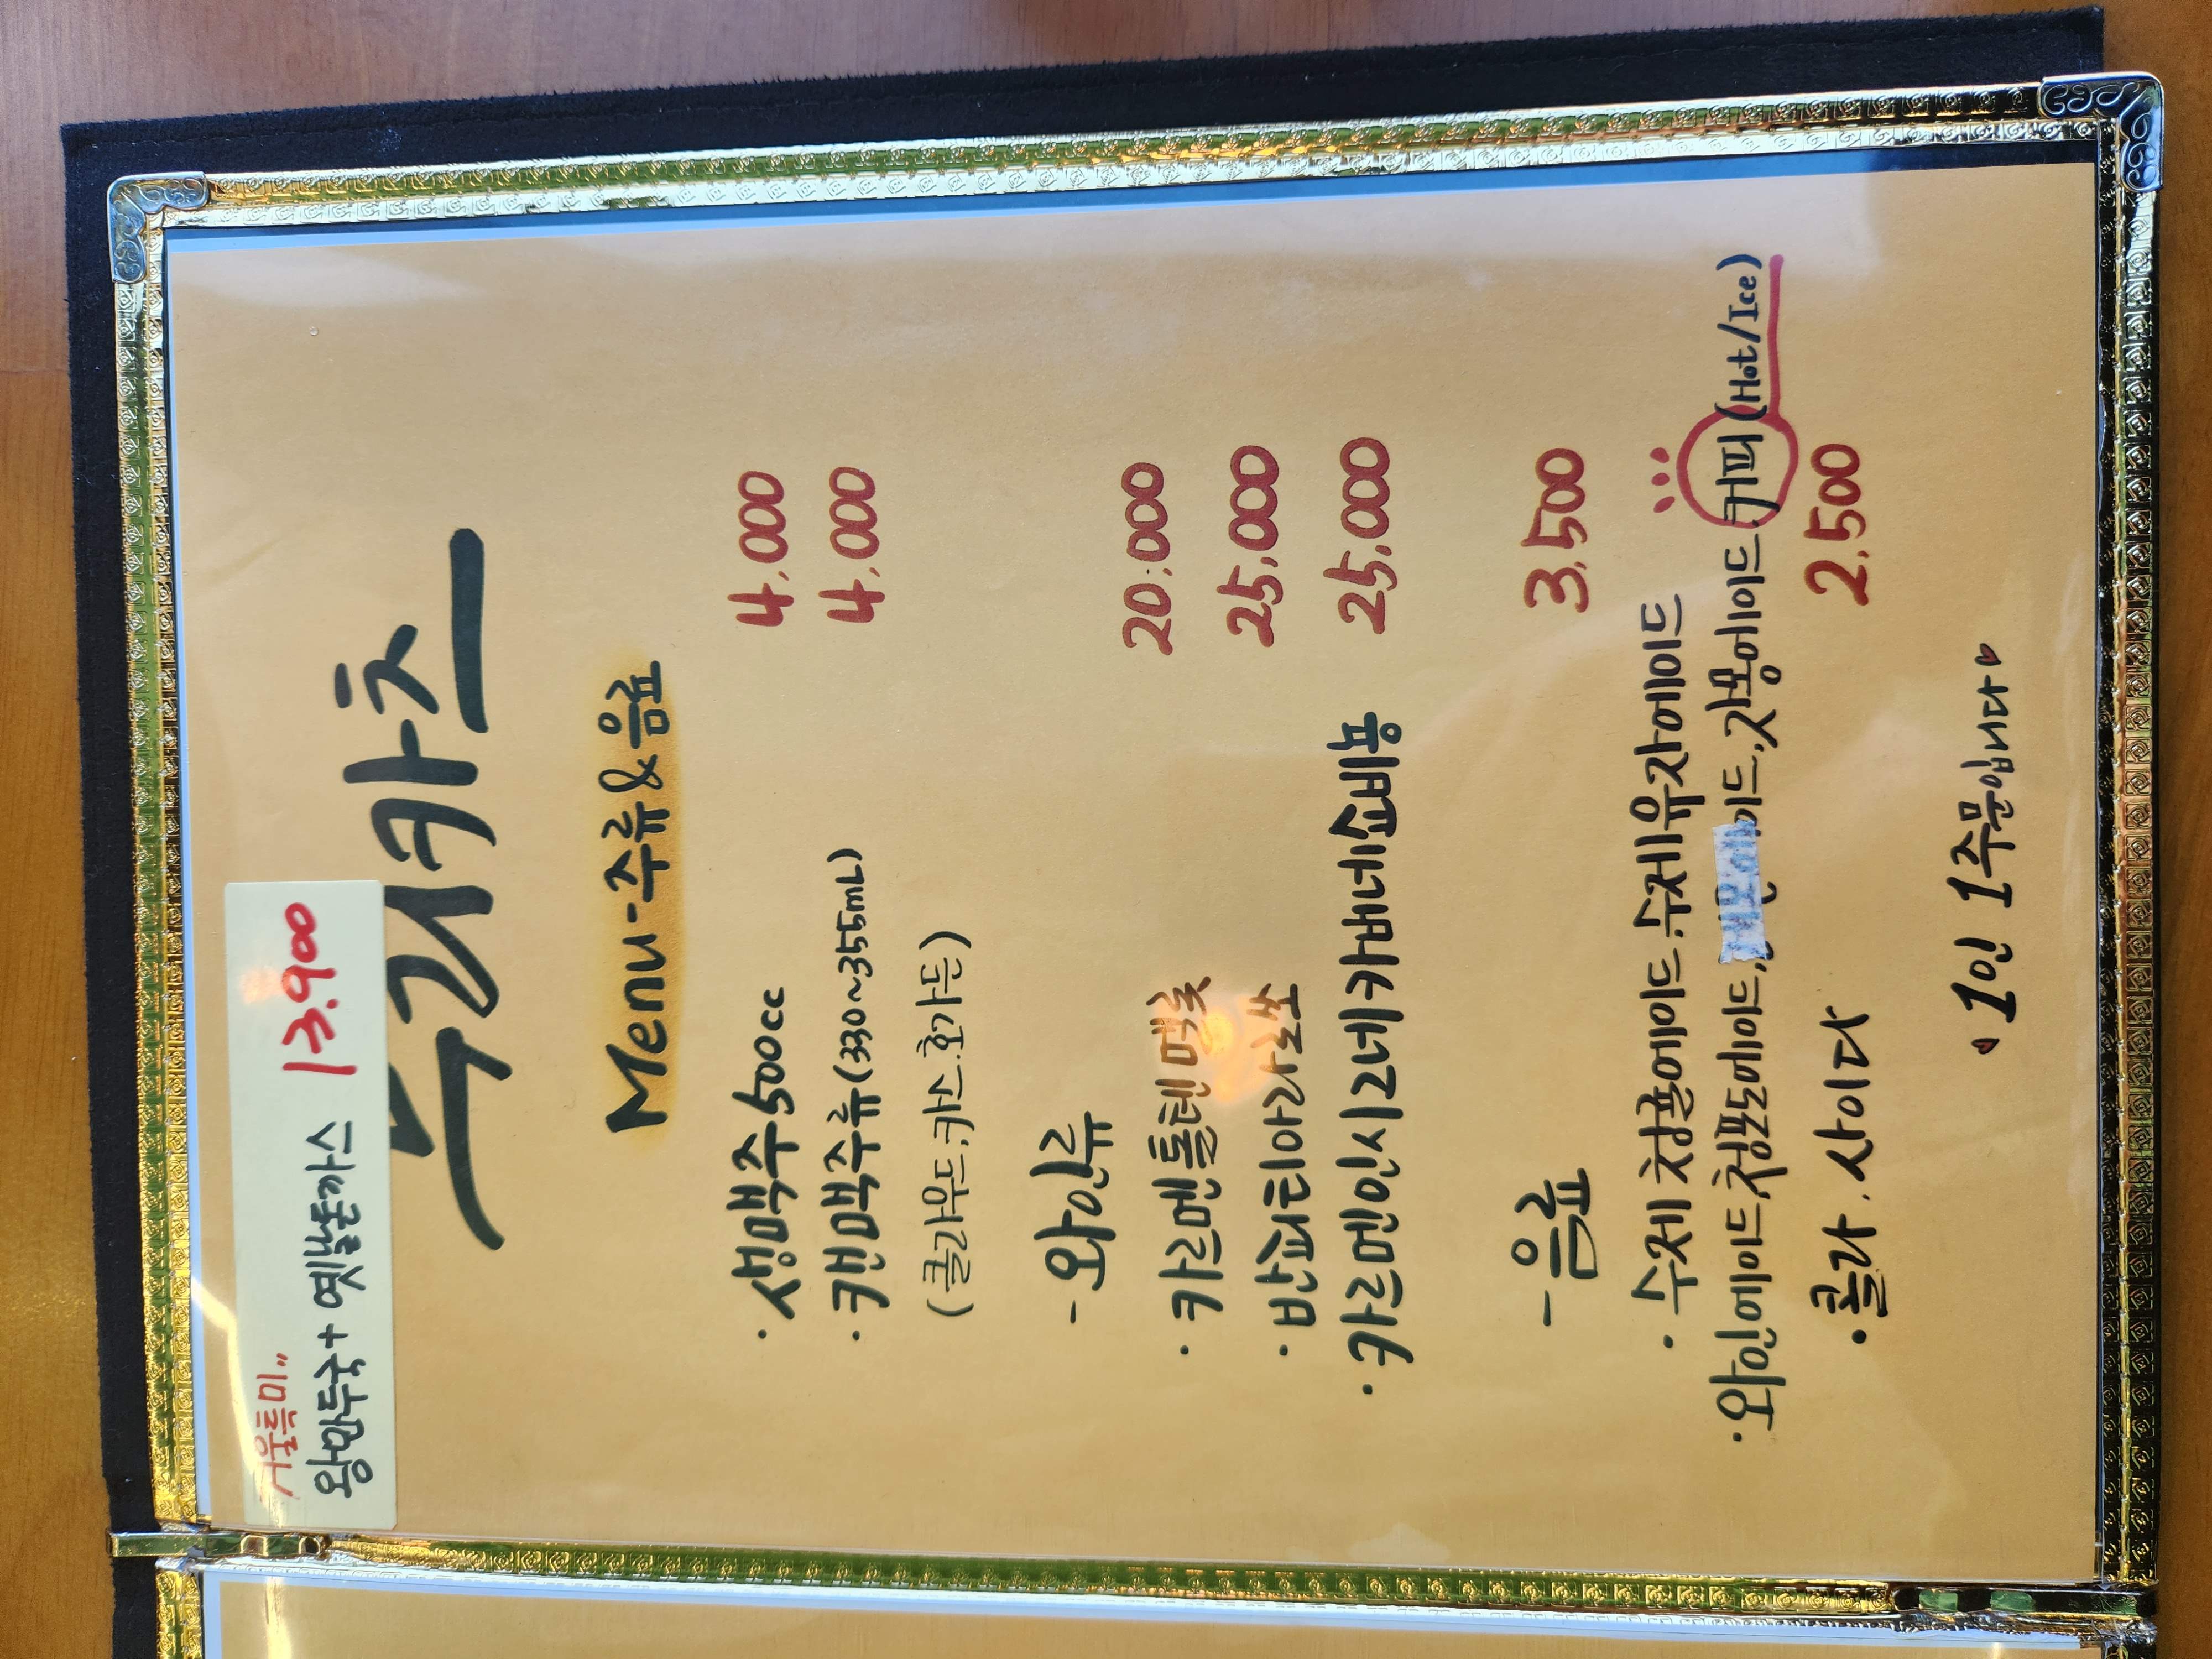 겨울특미..
왕만두국 + 옛날돈까스 13.900
수리카츠
Menu - 주류 & 음료
· 생맥주 500cc 4.000
· 캔맥주류 (330~355mL) 4.000
(클라우드.카스.호가든)
- 와인류
· 카르멘 톨텐 멜롯 20.000
· 반피 티아라 로쏘 25.000
· 카르멘 인시그네 카버네쇼비뇽 25.000
- 음료 3.500
· 수제 청귤에이드. 수제 유자에이드
· 와인에이드. 청포도에이드, 이드. 자몽에이드. 커피 (Hot/Ice)
· 콜라. 사이다 2.500
♥ 1인 1주문입니다 ♥